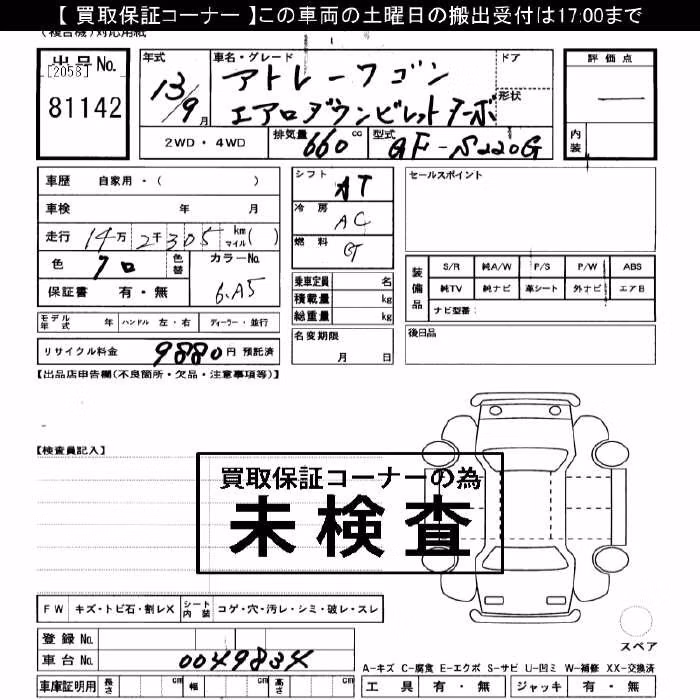 【 買取保証コーナー 】この車両の土曜日の搬出受付は17:00まで
(複合機)対応用紙
出品No. [2058] 81142
年式 13/9月
車名・グレード アトレーワゴン
エアロダウンビレットターボ
ドア
形状
評価点 —
内装
2WD・4WD 排気量 660cc 型式 GF-S220G
車歴 自家用・( )
車検 年 月
走行 14万2千305 km マイル( )
色 クロ 色替 カラーNo. 6.A5
保証書 有・無
シフト AT
冷房 AC
燃料
乗車定員 名
積載量 kg
総重量 kg
セールスポイント
装備品 S/R 純A/W P/S P/W ABS
純TV 純ナビ 革シート 外ナビ エアB
ナビ型番:
モデル年式 年 ハンドル 左・右 ディーラー・並行
名変期限 月 日
後日品
リサイクル料金 9880円 預託済
【出品店申告欄(不良箇所・欠品・注意事項等)】
【検査員記入】
買取保証コーナーの為
未検査
FW キズ・トビ石・割レX シート内装 コゲ・穴・汚レ・シミ・破レ・スレ
登録No.
車台No. 0049834
スペア
A-キズ C-腐食 E-エクボ S-サビ U-凹ミ W-補修 XX-交換済
車庫証明用 長さ cm 幅 cm 高さ cm
工具 有・無 ジャッキ 有・無